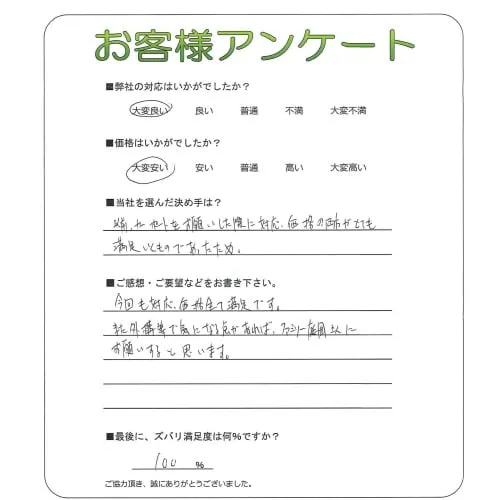 お客様アンケート
■弊社の対応はいかがでしたか？
大変良い 良い 普通 不満 大変不満
■価格はいかがでしたか？
大変安い 安い 普通 高い 大変高い
■当社を選んだ決め手は？
以前、カーポートをお願いした際に対応、価格の両方がとても
満足いくものであったため。
■ご感想・ご要望などをお書き下さい。
今回も対応、価格全て満足です。
又、外構等で気になる点があれば、ファミリー庭園さんに
お願いすると思います。
■最後に、ズバリ満足度は何％ですか？
100 ％
ご協力頂き、誠にありがとうございました。